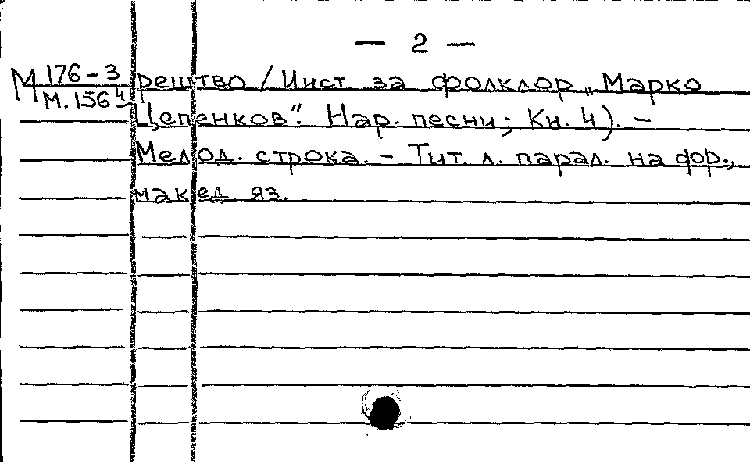 — 2 —
М 176-3 рештво / Инст за фолклор „Марко
М.1564 Цепенков". Нар. песни; Кн. 4). -
Мелод. строка. - Тит. л. парал. на фор.,
макед яз.